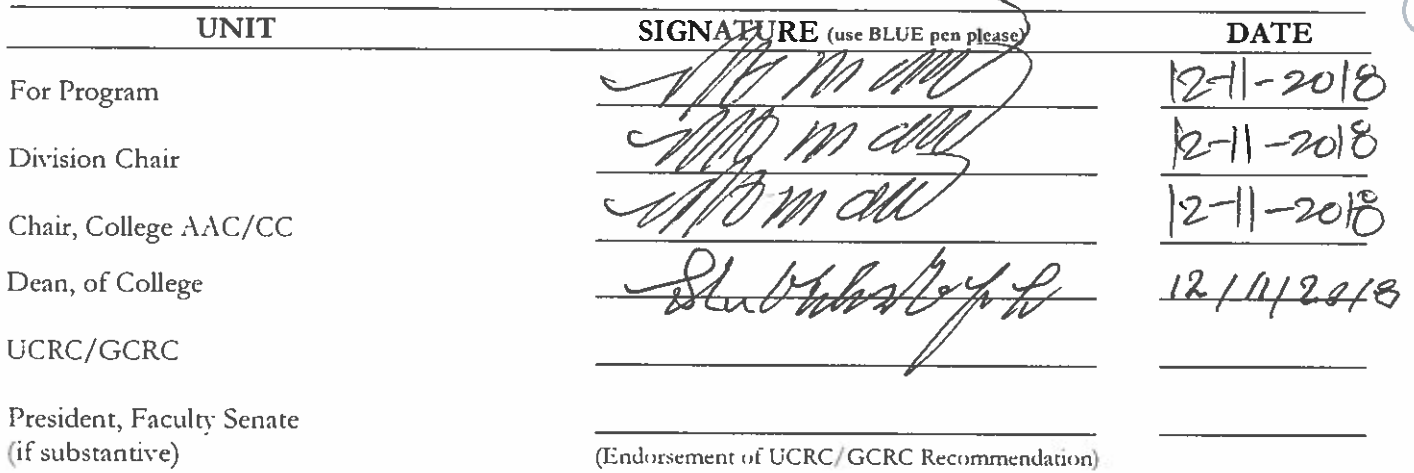 UNIT SIGNATURE (use BLUE pen please) DATE
For Program 12-11-2018
Division Chair 12-11-2018
Chair, College AAC/CC 12-11-2018
Dean, of College 12/11/2018
UCRC/GCRC
President, Faculty Senate
(if substantive) (Endorsement of UCRC/GCRC Recommendation)